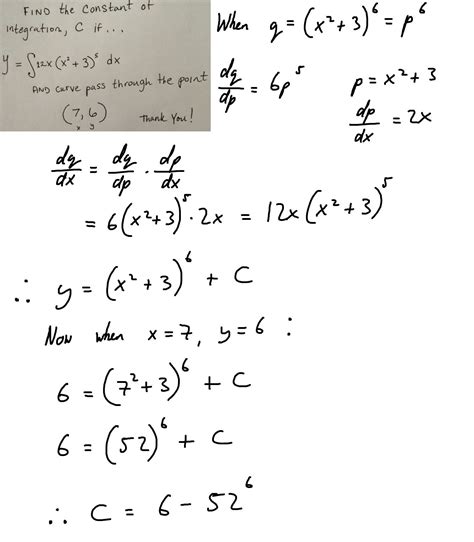 FIND the constant of
integration, C if...
y = ∫12x (x² + 3)⁵ dx
AND curve pass through the point
(7, 6)
x y
Thank You!
When q = (x² + 3)⁶ = p⁶
dq/dp = 6p⁵
p = x² + 3
dp/dx = 2x
dq/dx = dq/dp · dp/dx
= 6(x² + 3)⁵ · 2x = 12x(x² + 3)⁵
∴ y = (x² + 3)⁶ + C
Now when x = 7, y = 6 :
6 = (7² + 3)⁶ + C
6 = (52)⁶ + C
∴ C = 6 - 52⁶